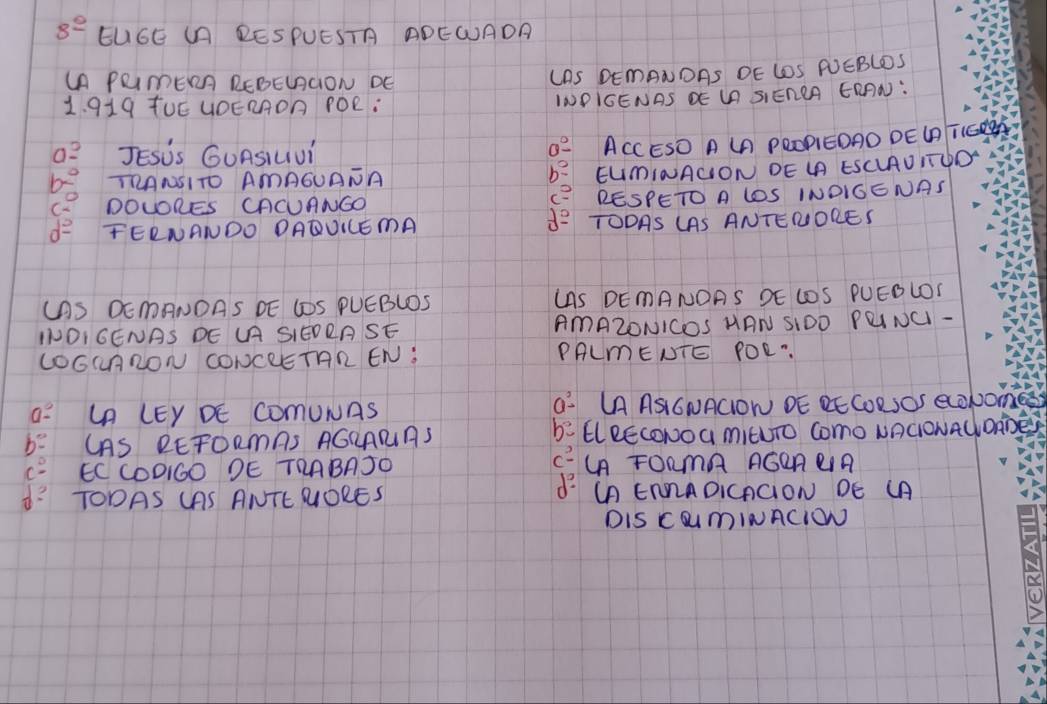 8º ELIGE LA RESPUESTA ADECUADA
LA PRIMERA REBELACION DE
1.919 FUE LIDERADA POR:
aº JESÚS GUASILUÍ
bº TRANSITO AMAGUAÑA
cº DOLORES CACUANGO
dº FERNANDO DAQUILEMA
LAS DEMANDAS DE LOS PUEBLOS
INDIGENAS DE LA SIERRA ERAN:
aº ACCESO A LA PROPIEDAD DE LA TIERRA
bº ELIMINACION DE LA ESCLAVITUD
cº RESPETO A LOS INDIGENAS
dº TODAS LAS ANTERIORES
LAS DEMANDAS DE LOS PUEBLOS
INDIGENAS DE LA SIERRA SE
LOGRARON CONCRETAR EN:
aº LA LEY DE COMUNAS
bº LAS REFORMAS AGRARIAS
cº EL CODIGO DE TRABAJO
dº TODAS LAS ANTERIORES
LAS DEMANDAS DE LOS PUEBLOS
AMAZONICOS HAN SIDO PRINCI-
PALMENTE POR:
aº LA ASIGNACION DE RECURSOS ECONOMICOS
bº EL RECONOCIMIENTO COMO NACIONALIDADES
cº LA FORMA AGRARIA
dº LA ERRADICACION DE LA
DISCRIMINACION
VERZATIL